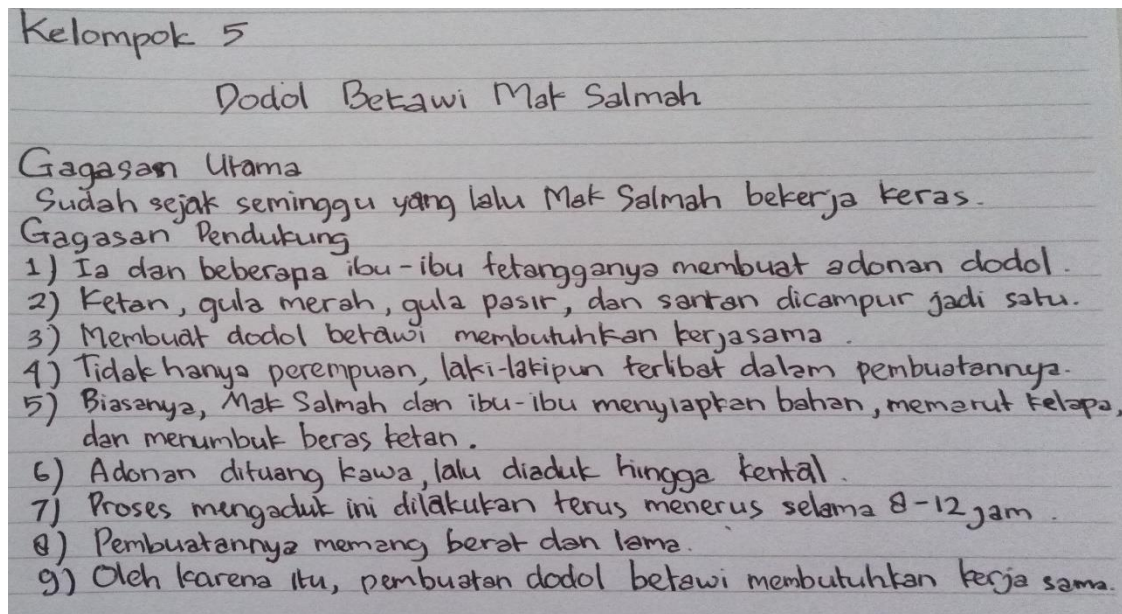 Kelompok 5
Dodol Betawi Mak Salmah
Gagasan Utama
Sudah sejak seminggu yang lalu Mak Salmah bekerja keras.
Gagasan Pendukung
1) Ia dan beberapa ibu-ibu tetangganya membuat adonan dodol.
2) Ketan, gula merah, gula pasir, dan santan dicampur jadi satu.
3) Membuat dodol betawi membutuhkan kerjasama.
4) Tidak hanya perempuan, laki-lakipun terlibat dalam pembuatannya.
5) Biasanya, Mak Salmah dan ibu-ibu menyiapkan bahan, memarut kelapa,
dan menumbuk beras ketan.
6) Adonan dituang kawa, lalu diaduk hingga kental.
7) Proses mengaduk ini dilakukan terus menerus selama 8-12 jam.
8) Pembuatannya memang berat dan lama.
9) Oleh karena itu, pembuatan dodol betawi membutuhkan kerja sama.